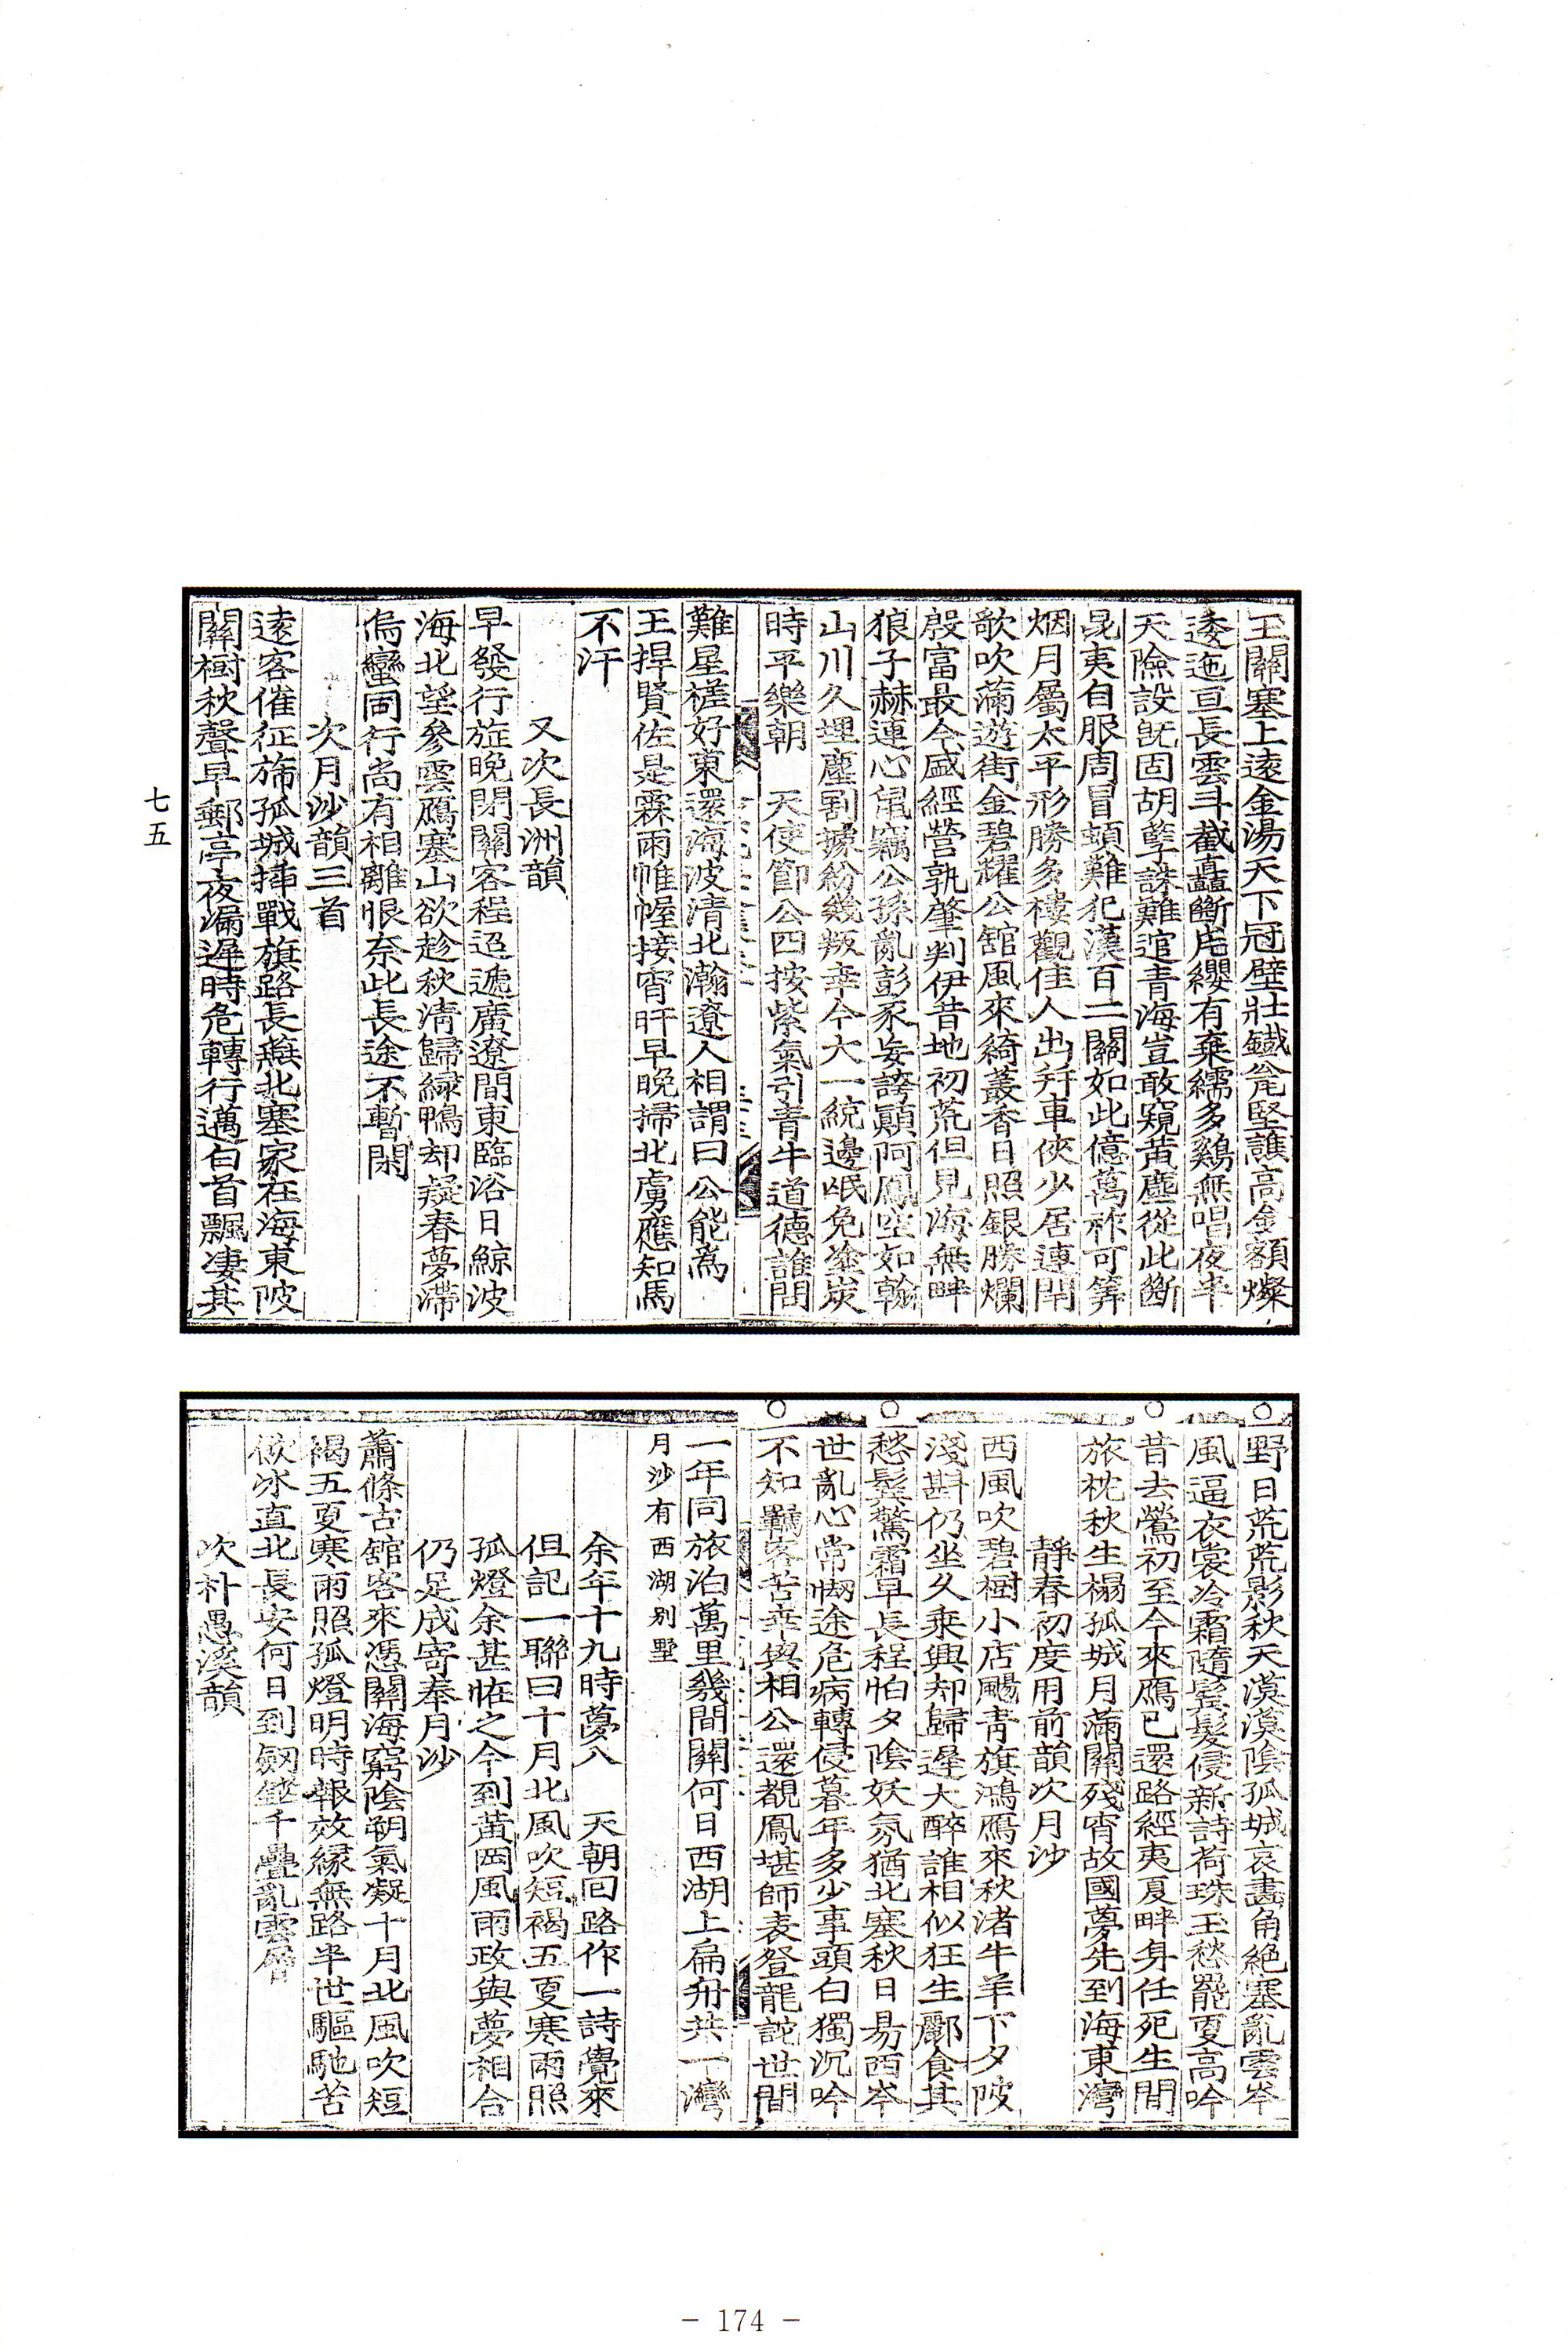 玉關塞上遠金湯天下冠壁壯鐵瓮堅譙高金額燦
逶迤亘長雲斗截矗斷岸纓有棄繻多鷄無唱夜半
天險設旣固胡孼誅難逭靑海豈敢窺黃塵從此斷
昆夷自服周冒頓難犯漢百二關如此億萬祚可筭
烟月屬太平形勝多樓觀佳人出幷車俠少居連閈
歌吹滿遊街金碧耀公舘風來綺叢香日照銀勝爛
殷富最今盛經營孰肇判伊昔地初荒但見海無畔
狼子赫連心鼠竊公孫亂彭豕妄誇顚阿鳳空如翰
山川久埋塵割據紛幾叛幸今大一統邊岷免塗炭
時平樂朝　天使節公四按紫氣引靑牛道德誰問
難星槎好東還海波淸北瀚遼人相謂曰公能爲
王捍賢佐是霖雨帷幄接宵旰早晩掃北虜應知馬
不汗
又次長洲韻
早發行旌晩閉關客程迢遞廣遼間東臨浴日鯨波
海北望參雲鴈塞山欲趁秋淸歸綠鴨却疑春夢滯
烏蠻同行尙有相離恨奈此長途不暫閑
次月沙韻三首
遠客催征旆孤城揷戰旗路長蕪北塞家在海東陂
關樹秋聲早郵亭夜漏遲時危轉行邁白首飄凄其
七五
野日荒荒影秋天漠漠陰孤城哀畵角絶塞亂雲岑
風逼衣裳冷霜隨鬂髮侵新詩荷珠玉愁罷更高吟
昔去鶯初至今來鴈已還路經夷夏畔身任死生間
旅枕秋生榻孤城月滿關殘宵故國夢先到海東灣
靜春初度用前韻次月沙
西風吹碧樹小店颺靑旗鴻鴈來秋渚牛羊下夕陂
淺斟仍坐久乘興却歸遲大醉誰相似狂生酈食其
愁鬂驚霜早長程怕夕陰妖氛猶北塞秋日易西岑
世亂心常惻途危病轉侵暮年多少事頭白獨沉吟
不知羈客苦幸與相公還覩鳳堪師表登龍詫世間
一年同旅泊萬里幾間關何日西湖上扁舟共一灣
月沙有西湖別墅
余年十九時夢入　天朝回路作一詩覺來
但記一聯曰十月北風吹短褐五更寒雨照
孤燈余甚怪之今到黃岡風雨政與夢相合
仍足成寄奉月沙
蕭條古舘客來憑關海窮陰朔氣凝十月北風吹短
褐五更寒雨照孤燈明時報效緣無路半世驅馳苦
飮冰直北長安何日到劒鋩千疊亂雲層
次朴愚溪韻
- 174 -